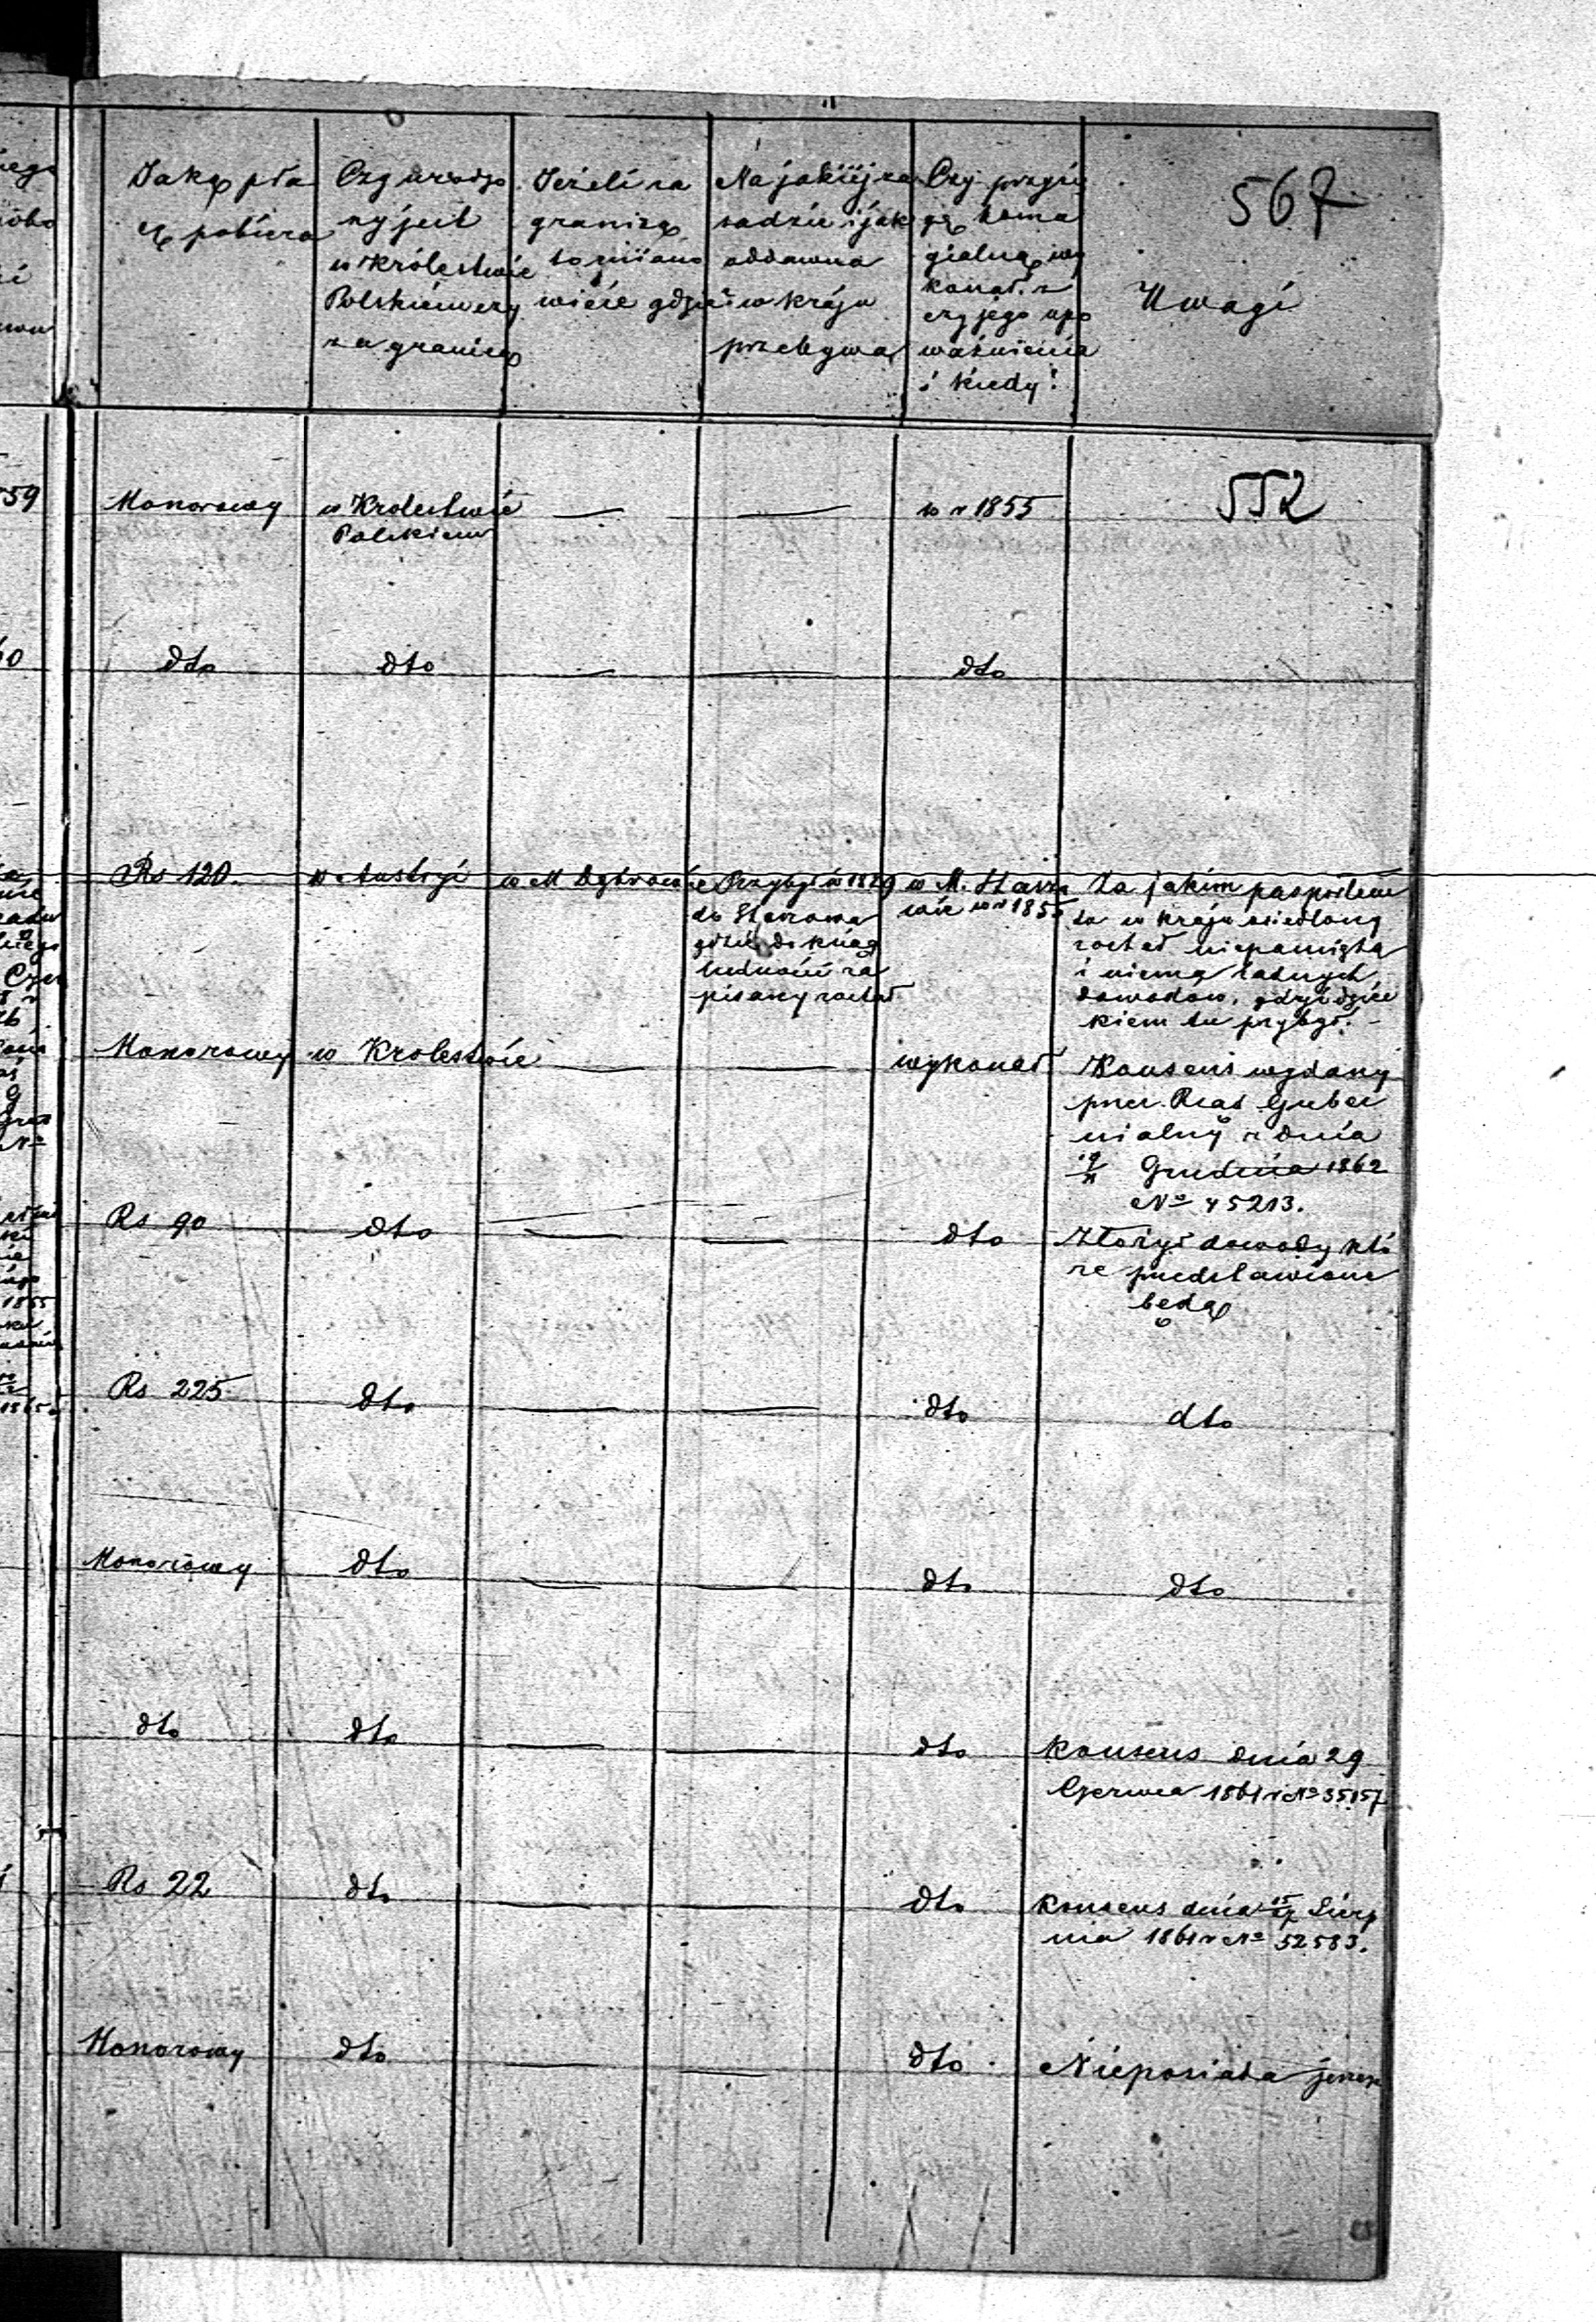 Jaką pła
cę pobiera
Czy urodzo
ny jest
w Królestwie
Polskiem czy
za granicą
Jeżeli za
granicą
to mianο
wicie gdzie
Na jakiej za
sadzie i jak
oddawna
w kraju
przebywa
Czy przysię
gę homa
gialną wy
konał z
czyjego upo
ważnienia
i kiedy?
567
Uwagi
59
Honorowy
w Krolestwie
Polskiem
—
—
w r 1855
552
dto
dto
—
—
dto
Rs 120.
w Austryi
w M Dąbrowie
Przybył w 1829
do
gdzie do ksiąg
ludności za
pisany został
w M.
wie w r 1855
Za jakim pasportem
to w kraju osiedlony
został niepamięta
i niema żadnych
dowodow, gdyż dziec
kiem tu przybył. -
Honorowy
w Krolestwie
—
—
wykonał
Konsens wydany
przez Rząd Guber
nialny z dnia
Grudnia 1862
No 45213.
Rs 90
dto
—
—
dto
Złożył dowody któ
re przedstawione
będą
Rs 225
dto
—
—
dto
dto
Honorowy
dto
—
—
dto
dto
dto
dto
—
—
dto
Konsens dnia 29
Czerwca 1861 r No 35157
Rs 22
dto
—
—
dto
Konsens dnia Sierp
nia 1861 r No 52583.
Honorowy
dto
—
—
dto
Nieposiada